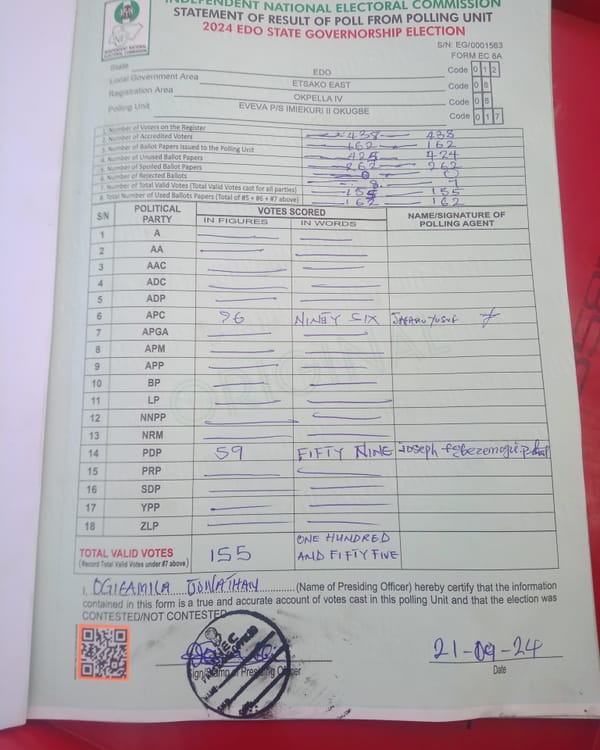 INDEPENDENT NATIONAL ELECTORAL COMMISSION
STATEMENT OF RESULT OF POLL FROM POLLING UNIT
2024 EDO STATE GOVERNORSHIP ELECTION
INDEPENDENT NATIONAL ELECTORAL COMMISSION
S/N: EG/0001563
FORM EC 8A
State EDO Code 0 1 2
Local Government Area ETSAKO EAST Code 0 8
Registration Area OKPELLA IV Code 0 8
Polling Unit EVEVA P/S IMIEKURI II OKUGBE Code 0 1 7
1. Number of Voters on the Register 438 438
2. Number of Accredited Voters 162 162
3. Number of Ballot Papers Issued to the Polling Unit 424
4. Number of Unused Ballot Papers 262 262
5. Number of Spoiled Ballot Papers 0 0
6. Number of Rejected Ballots 7
7. Number of Total Valid Votes (Total Valid Votes cast for all parties) 155 155
8. Total Number of Used Ballots Papers (Total of #5 + #6 + #7 above) 162 162
S/N POLITICAL PARTY VOTES SCORED NAME/SIGNATURE OF POLLING AGENT
IN FIGURES IN WORDS
1 A
2 AA
3 AAC
4 ADC
5 ADP
6 APC 96 NINETY SIX
7 APGA
8 APM
9 APP
10 BP
11 LP
12 NNPP
13 NRM
14 PDP 59 FIFTY NINE Joseph
15 PRP
16 SDP
17 YPP
18 ZLP
ORIGINAL
TOTAL VALID VOTES 155 ONE HUNDRED
(Record Total Valid Votes under #7 above) AND FIFTY FIVE
I, OGIEAMILA JONATHAN (Name of Presiding Officer) hereby certify that the information
contained in this form is a true and accurate account of votes cast in this polling Unit and that the election was
CONTESTED/NOT CONTESTED
INEC
21-09-24
Sign/Stamp of Presiding Officer Date